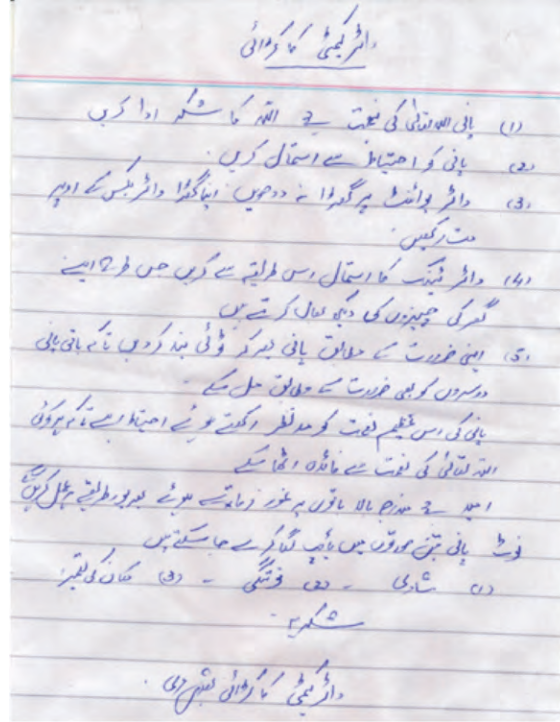 واٹر کمیٹی کا کڑوائی
(1) پانی اللہ تعالیٰ کی نعمت ہے اللہ کا شکر ادا کریں
(2) پانی کو احتیاط سے استعمال کریں۔
(3) واٹر پوائنٹ پر گھوڑا نہ دھوئیں۔ اپنا گھوڑا واٹر بکس کے اوپر
مت رکھیں۔
(4) واٹر ٹینک کا استعمال اس طریقے سے کریں جس طرح اپنے
گھر کی چیزوں کی دیکھ بھال کرتے ہیں
(5) اپنی ضرورت کے مطابق پانی بھر کر ٹوٹی بند کر دیں تاکہ باقی پانی
دوسروں کو بھی ضرورت کے مطابق مل سکے۔
پانی کی اس عظیم نعمت کو مدنظر رکھتے ہوئے احتیاط تاکہ ہر کوئی
اللہ تعالیٰ کی نعمت سے فائدہ اٹھا سکے
امید ہے مندرجہ بالا باتوں پر غور فرماتے ہوئے بھرپور طریقے پر عمل کریں گے
نوٹ پانی تین صورتوں میں پائپ لگا کر لے جا سکتے ہیں
(1) شادی ۔ (2) فوتگی ۔ (3) مکان کی تعمیر
شکریہ۔
واٹر کمیٹی کا کڑوائی